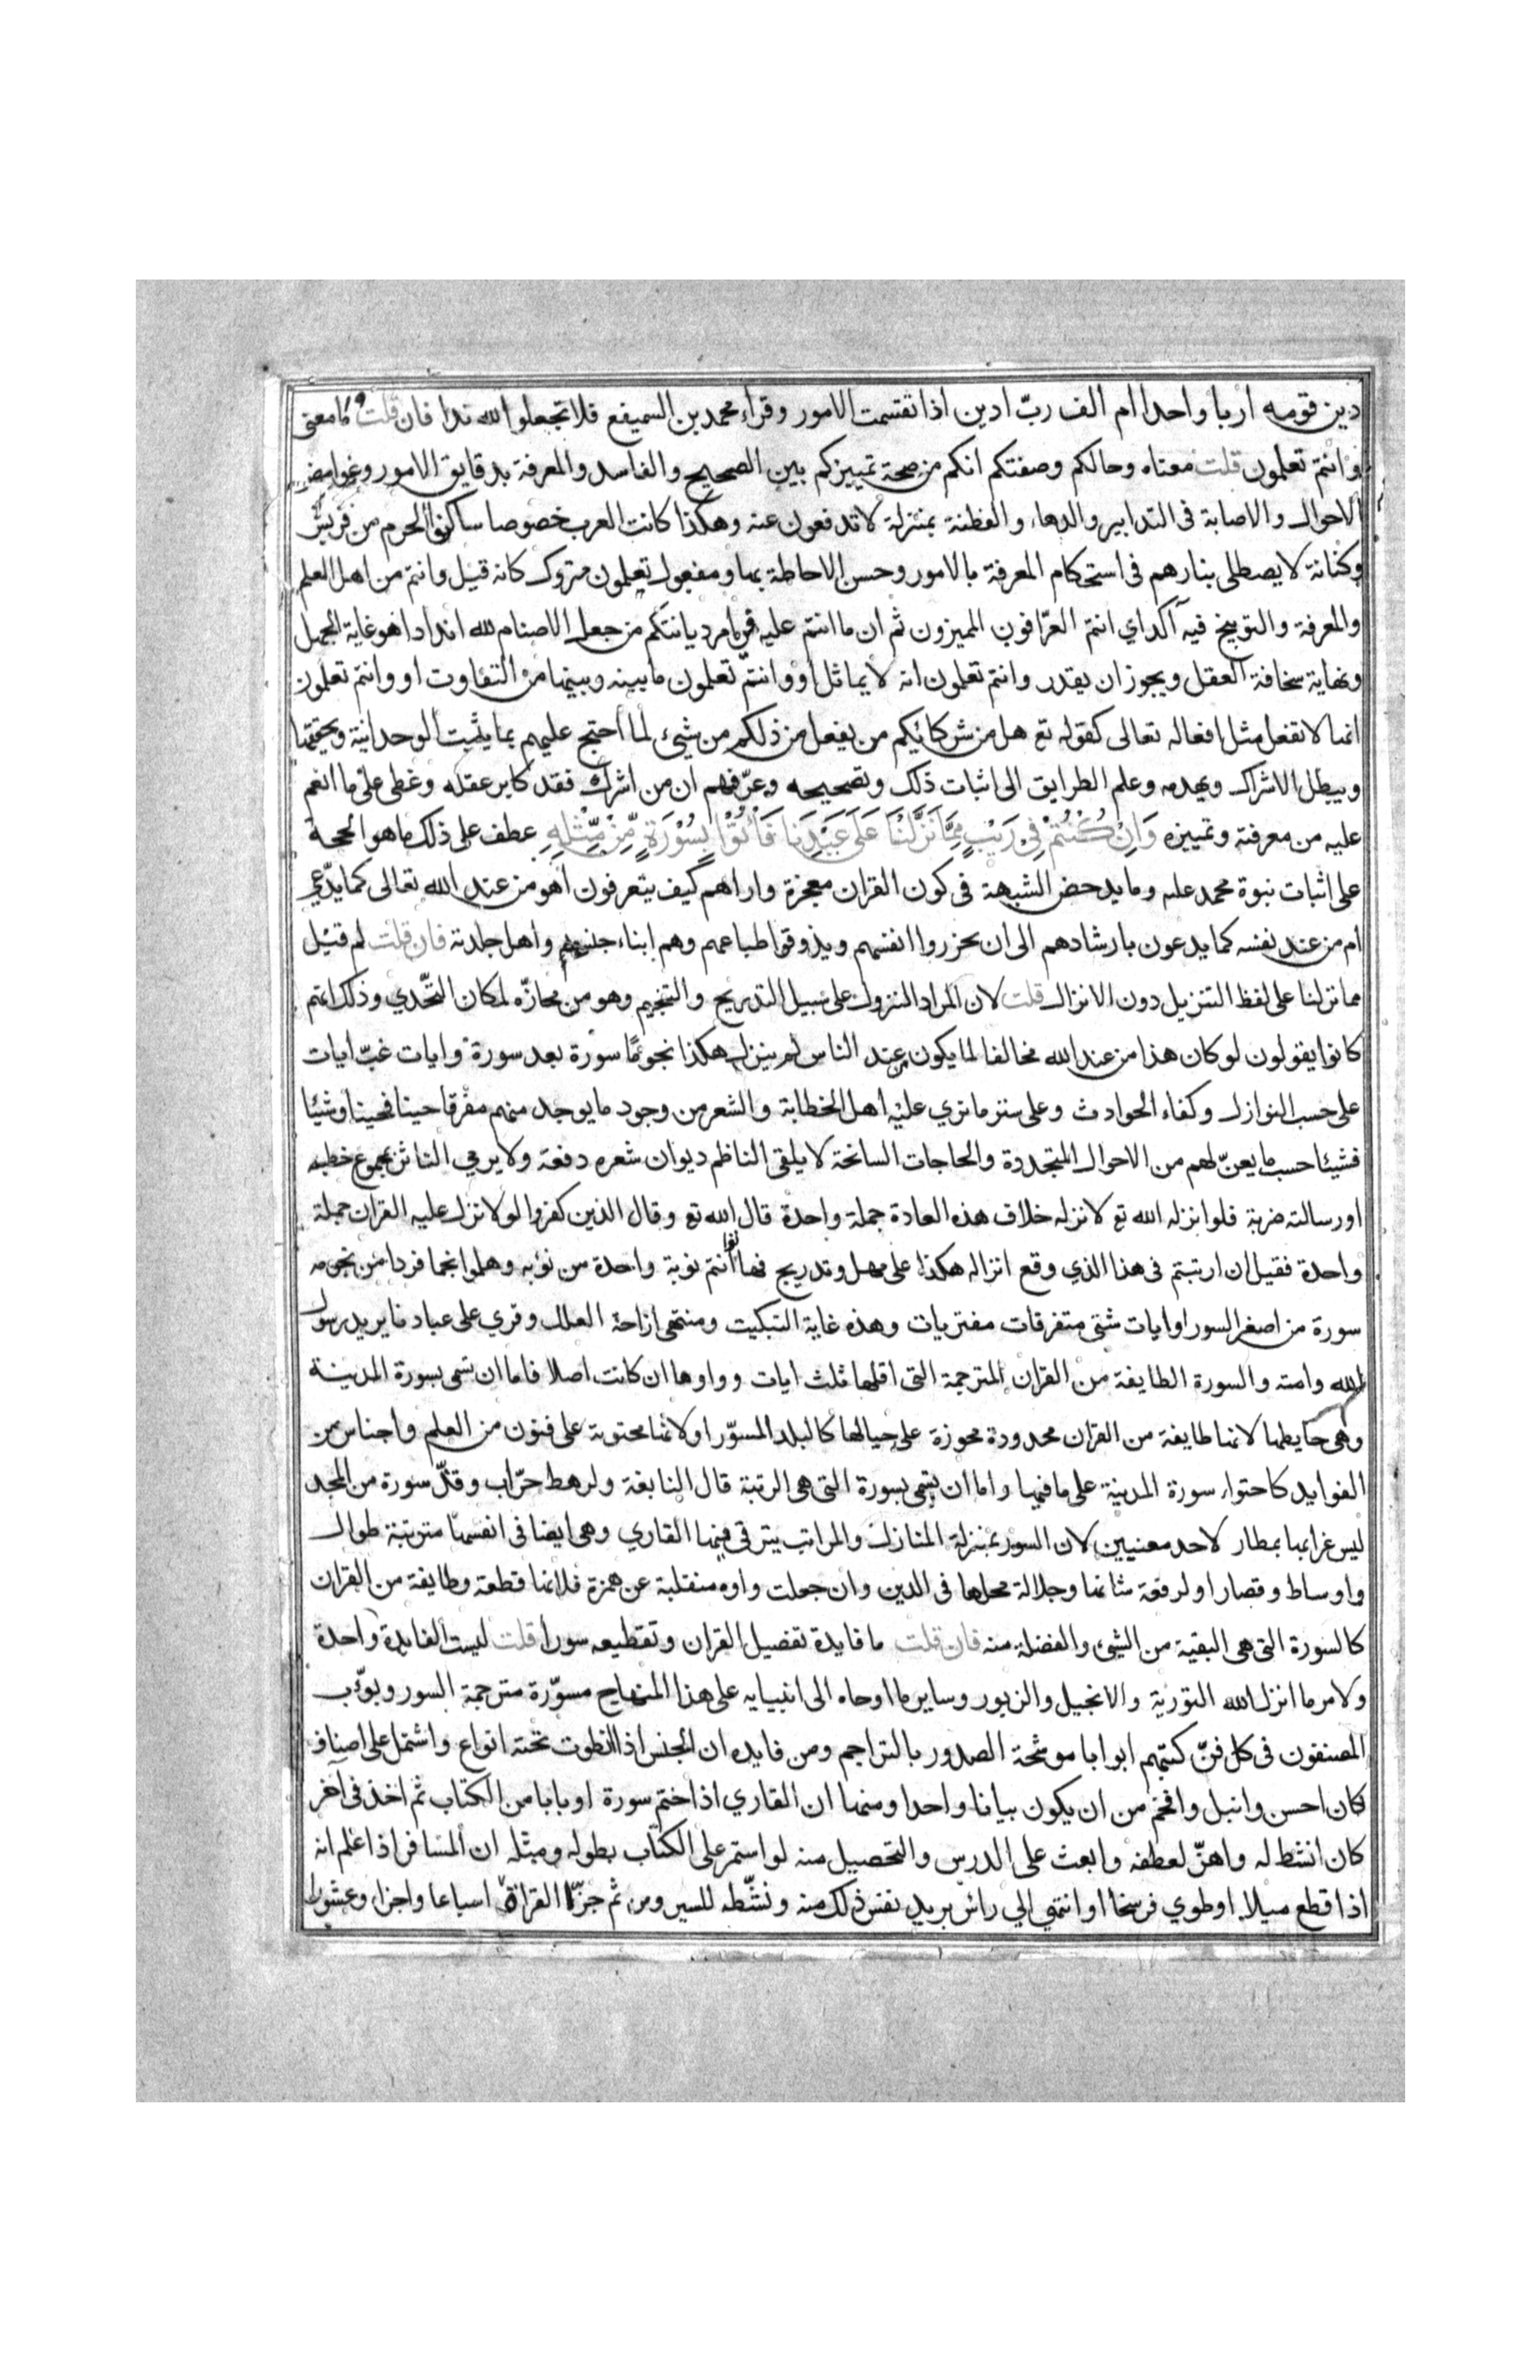 دين قومه اربا واحدا ام الف ربّ ادين اذا تقسمت الامور وقراء محمد بن السميفع فلا تجعلوا لله ندا فان قلت ما معنى
وانتم تعلمون قلت معناه وحالكم وصفتكم انكم من صحة تمييزكم بين الصحيح والفاسد والمعرفة بدقايق الامور وغوامض
الاحوال والاصابة فى التدابير والدهاء والفطنة بمنزلة لا تدفعون عنه وهكذا كانت العرب خصوصا ساكنوا الحرم من قريش
وكنانة لا يصطلى بنارهم فى استحكام المعرفة بالامور وحسن الاحاطة بها ومفعول تعلمون متروك كانه قيل وانتم من اهل العلم
والمعرفة والتوبيخ فيه آكد اي انتم العرّافون المميزون ثم ان ما انتم عليه في امر ديانتكم من جعل الاصنام لله اندادا هو غاية الجهل
ونهاية سخافة العقل ويجوز ان يقدر وانتم تعلمون انه لا يماثل او وانتم تعلمون ما بينه وبينها من التفاوت او وانتم تعلمون
انها لا تفعل مثل افعاله تعالى كقوله تع هل من شركائكم من يفعل من ذلكم من شيء لما احتج عليهم بما يثبت الوحدانية ويحققها
ويبطل الاشراك ويهدمه وعلم الطرايق الى اثبات ذلك وتصحيحه وعرّفهم ان من اشرك فقد كابر عقله وغطى على ما انعم
عليه من معرفته وتمييزه وَاِنْ كُنْتُمْ فِي رَيْبٍ مِمَّا نَزَّلْنَا عَلَى عَبْدِنَا فَأْتُوْا بِسُوْرَةٍ مِّنْ مِّثْلِهِ عطف على ذلك ما هو الحجة
على اثبات نبوة محمد علىه وما يدحض الشبهة فى كون القران معجزة واراهم كيف يتعرفون اهو من عند الله تعالى كما يدّعي
ام من عند نفسه كما يدعون بارشادهم الى ان يحزروا انفسهم ويذوقوا طباعهم وهم ابناء جنسهم واهل جلدته فان قلت لم قيل
مما نزلنا على لفظ التنزيل دون الانزال قلت لان المراد النزول على سبيل التدريج والتنجيم وهو من محازّه لمكان التحّدي وذلك انهم
كانوا يقولون لو كان هذا من عند الله مخالفا لما يكون عند الناس لم ينزل هكذا نجومًا سورة بعد سورة وايات غبّ ايات
على حسب النوازل وكفاء الحوادث وعلى سنن ما نري عليه اهل الخطابة والشعر من وجود ما يوجد منهم مفرقا حينا فحينا وشيئا
فشيئا حسب ما يعنّ لهم من الاحوال المتجددة والحاجات السانحة لا يلقى الناظم ديوان شعره دفعة ولا يرمي الناثر بمجموع خطبه
او رسالته ضربة فلو انزله الله تع لانزله خلاف هذه العادة جملة واحدة قال الله تع وقال الذين كفروا لولا نزل عليه القران جملة
واحدة فقيل ان ارتبتم فى هذا الذي وقع انزاله هكذا على مهل وتدريج فهاتوا انتم نوبة واحدة من نوبه وهلموا نجما فردا من نجومه
سورة من اصغر السور او ايات شتى متفرقات مفتريات وهذه غاية التبكيت ومنتهى ازاحة العلل وقري على عبادنا يريد رسول
الله وامته والسورة الطايفة من القران المترجمة التى اقلها ثلث ايات وواوها ان كانت اصلا فاما ان تسمى بسورة المدينة
وهى حايطها لانها طايفة من القران محدودة محوزة على حيالها كالبلد المسوّر او لانها محتوية على فنون من العلم واجناس من
الفوايد كاحتواء سورة المدينة على ما فيها واما ان تسمى بسورة التى هى الرتبة قال النابغة ولرهط حرّاب وقدّ سورة من المجد
ليس غرابها بمطار لاحد معنيين لان السور بمنزلة المنازل والمراتب يترقى فيها القاري وهى ايضا فى انفسها مترتبة طوال
واوساط وقصار او لرفعة شانها وجلالة محلها فى الدين وان جعلت واوه منقلبة عن همزة فلانها قطعة وطايفة من القران
كالسورة التى هى البقية من الشيء والفضلة منه فان قلت ما فايدة تفصيل القران وتقطيعه سورا قلت ليست الفايدة واحدة
ولامر ما انزل الله التورية والانجيل والزبور وساير ما اوحاه الى انبيايه على هذا المنهاج مسوّرة مترجمة السور وبوّب
المصنفون فى كل فنّ كتبهم ابوابا موشحة الصدور بالتراجم ومن فايده ان الجنس اذا انطوت تحته انواع واشتمل على اصناف
كان احسن وانبل وافخم من ان يكون بيانا واحدا ومنها ان القاري اذا ختم سورة او بابا من الكتاب ثم اخذ فى آخر
كان انشط له واهزّ لعطفه وابعث على الدرس والتحصيل منه لو استمر على الكتاب بطوله ومثله ان المسافر اذا علم انه
اذا قطع ميلا او طوي فرسخا او انتهي الي راس بريد نفس ذلك منه ونشّطه للسير ومن ثم جزّا القراة اسباعا واجزاء وعشورا